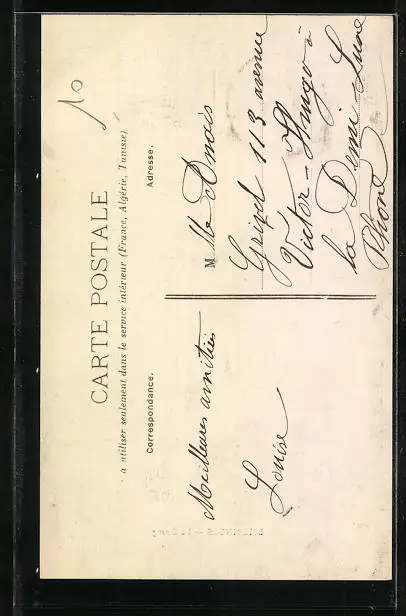 10
CARTE POSTALE
a utiliser seulement dans le service intérieur (France, Algérie, Tunisie)
Correspondance.
Adresse.
Meilleures amitiés
Louise
M lle Anaïs
Grizel 113 avenue
Victor-Hugo à
la Demi-Lune
Rhône